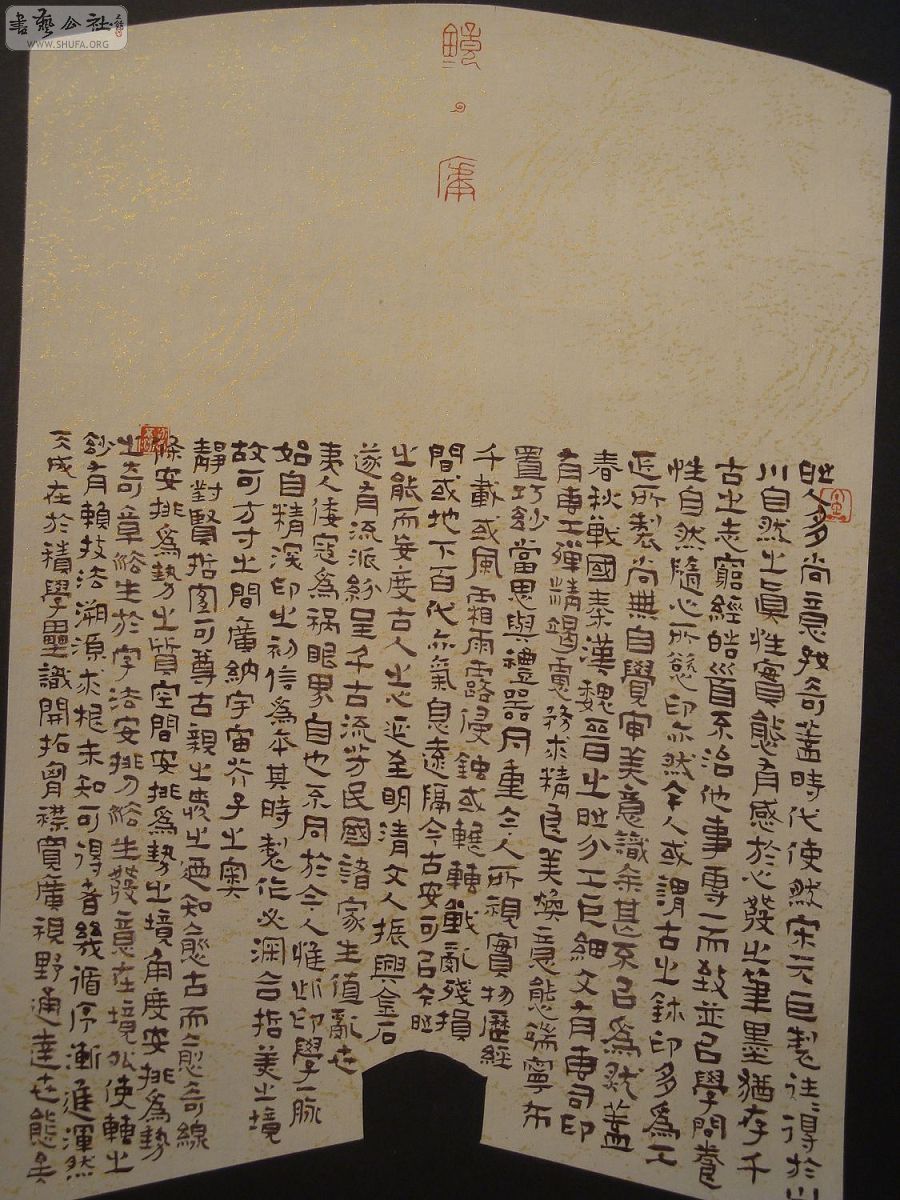 書藝公社
WWW.SHUFA.ORG
世人多尚意發奇蓋時代使然宋元巨製往往得於山
川自然之真性實態有感於心發之筆墨猶存千
古之志窮經皓首不治他事專一而致並以學問養
性自然隨心所慾印亦然今人或謂古之鉥印多為工
匠所製尚無自覺審美意識余甚不以為然蓋
春秋戰國秦漢魏晉之世分工巨細文有專司印
有專工殫精竭慮務求精良美煥意態端寧布
置巧妙當思與禮器同重今人所視實物歷經
千載或風霜雨露侵蝕或輾轉戰亂殘損
間或地下百代亦氣息遠隔今古安可以今世
之能而妄度古人之心延至明清文人振興金石
遂有流派紛呈千古流芳民國諸家生值亂世
夷人倭寇為禍眼界自也不同於今人惟此印學一脈
始自精深印之初信為本其時製作必淵合哲美之境
故可方寸之間廣納宇宙芥子之奧
靜對賢哲審可尊古親之裘之迺知愈古而愈奇線
條安排為勢之質空間安排為勢之境角度安排為勢
之奇章繇生於字法安排刀繇生發意在境外使轉之
妙有賴技法溯源求根未知可得者幾循序漸進渾然
天成在於積學壘識開拓胸襟寬廣視野通達世態矣